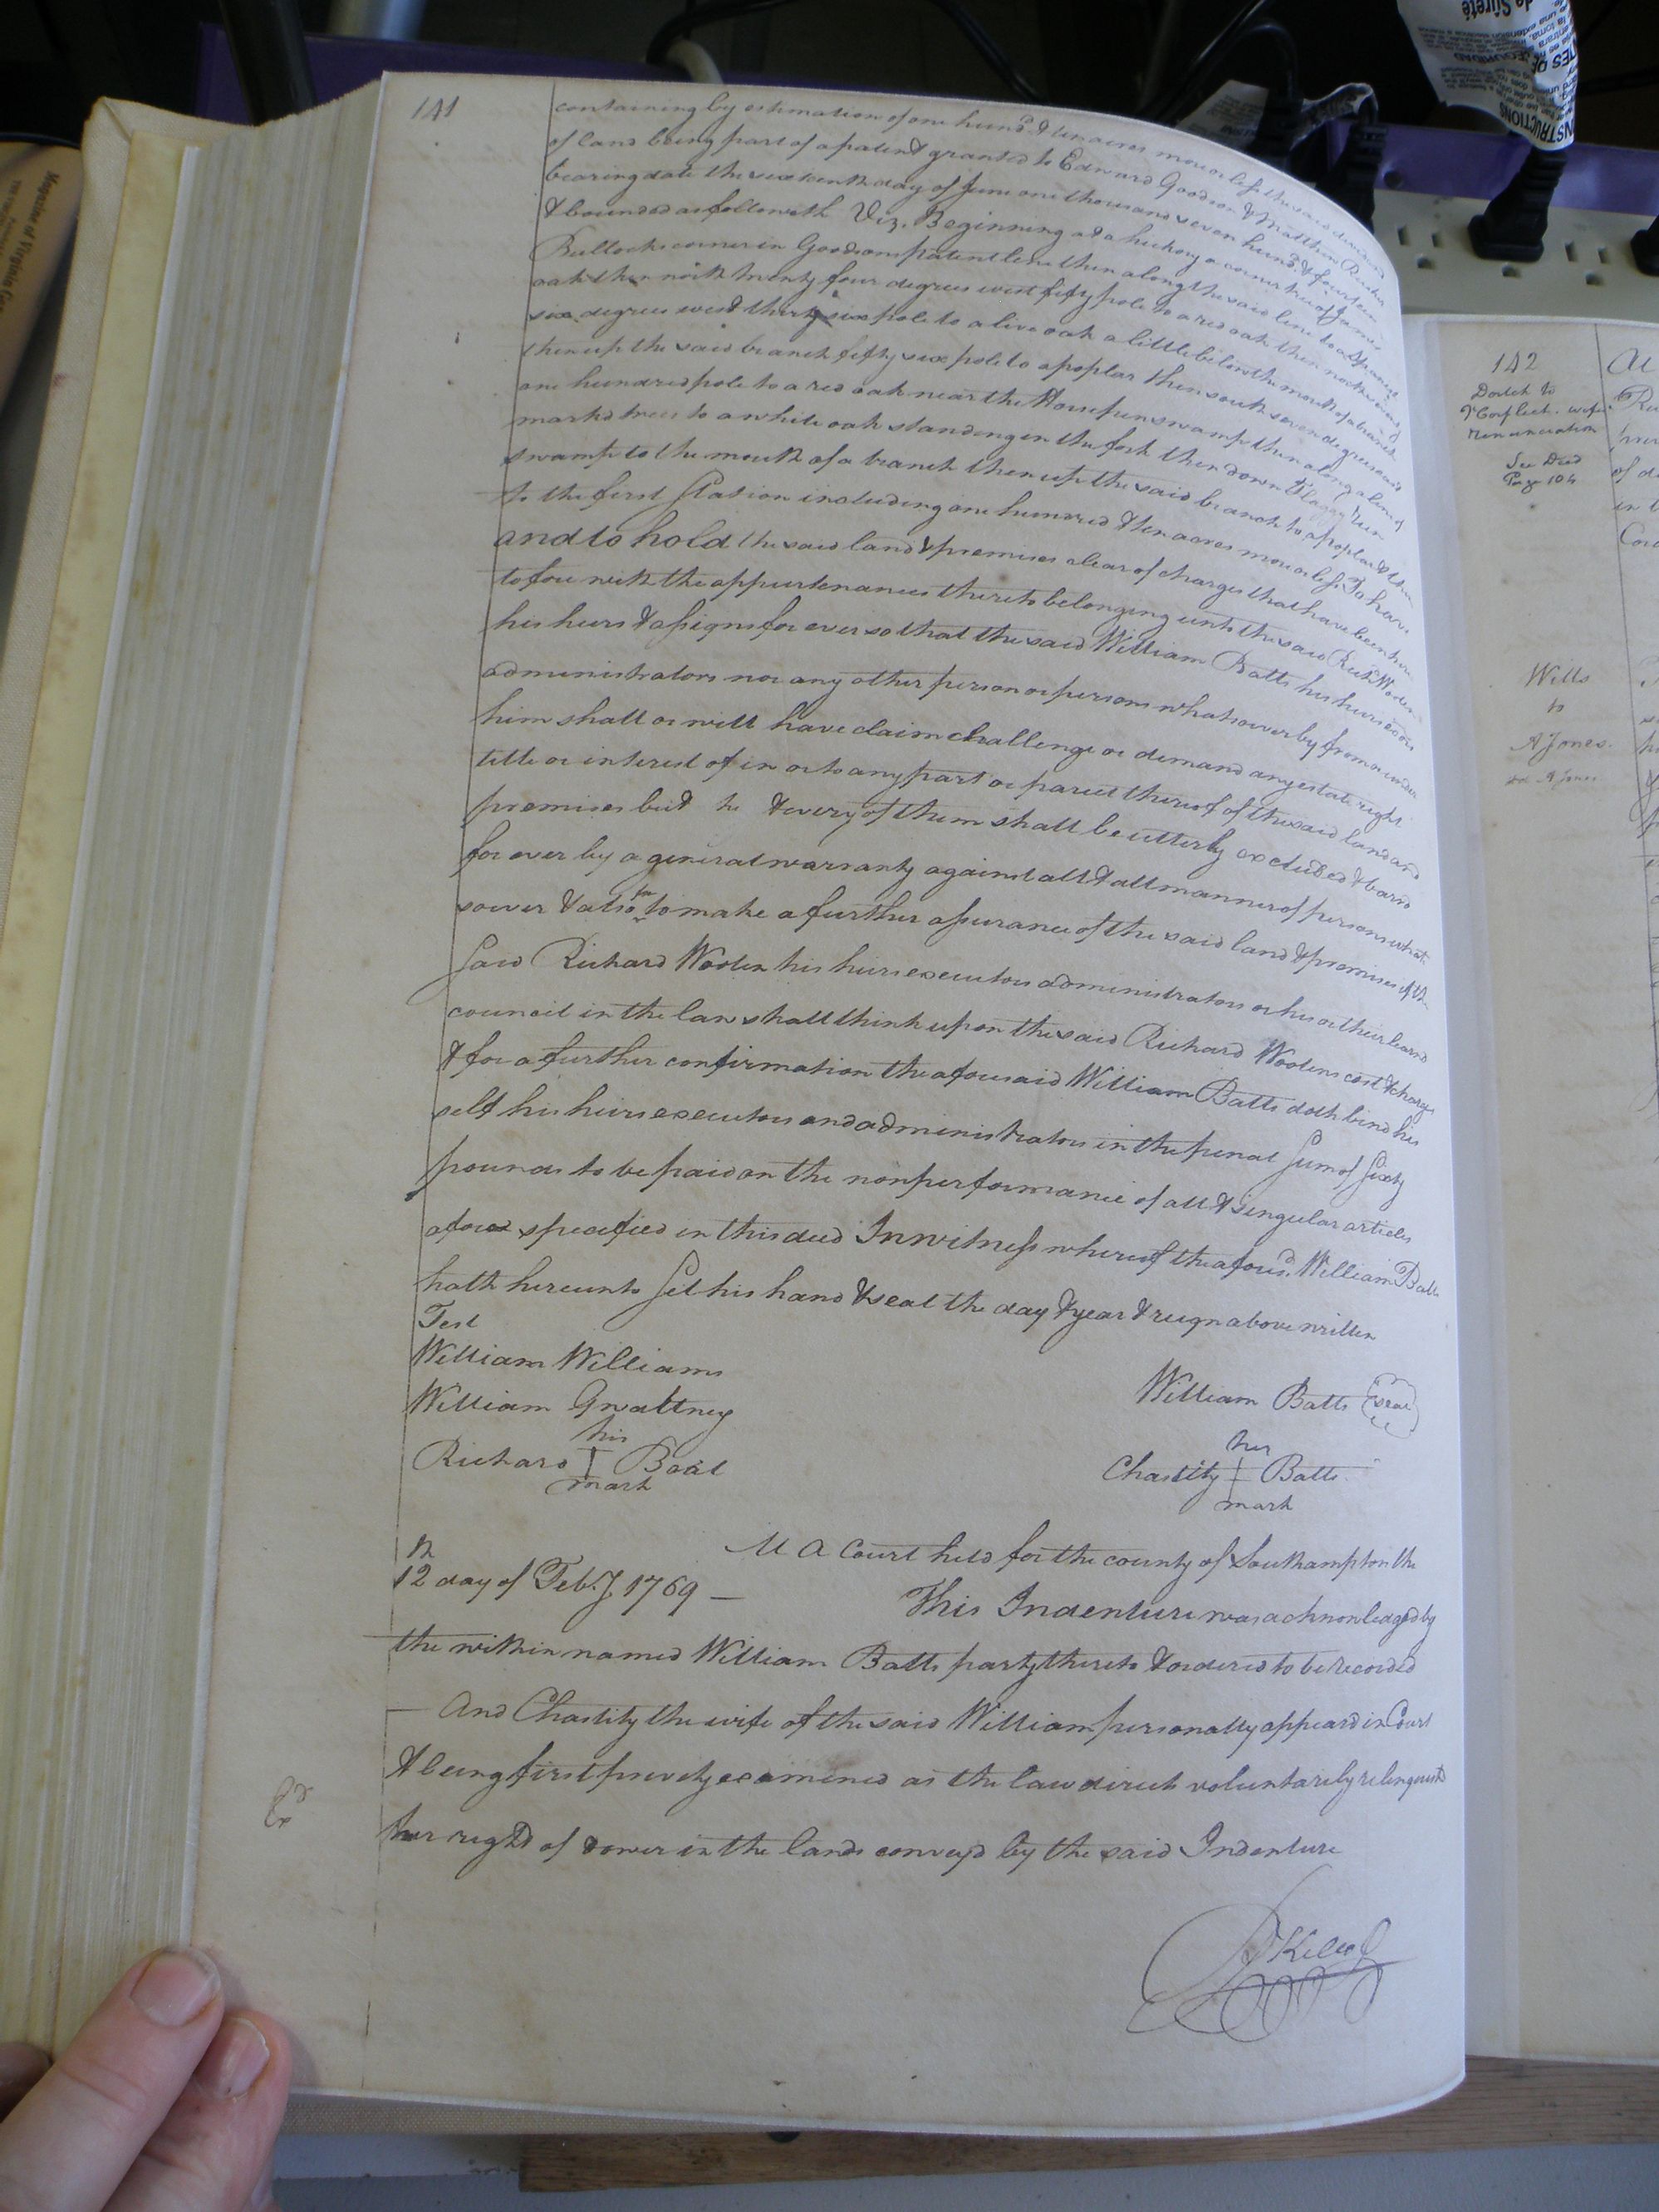 141
containing by estimation of one hund.d & ten acres more or less the said devidend
of land being part of a patent granted to Edward Goodson & Matthew Rusher
bearing date the sixteenth day of June one thousand seven hund.d & fourteen
& bounded as followeth Viz. Beginning at a hickory a corner tree of James
Bullocks corner in Goodsons patent line then along the said line to a Spanish
oak then north twenty four degrees west fifty pole to a red oak then north
six degrees west thirty six pole to a live oak a little below the mouth of a branch
then up the said branch fifty six pole to a poplar then south seven degrees
one hundred pole to a red oak near the Horsepen swamp then along a line of
markd trees to a white oak standing in the fork then down Flaggy run
swamp to the mouth of a branch then up the said branch to a poplar &
to the first Station including one hundred & ten acres more or less To have
and to hold the said land & premises clear of charges that have been here
tofore with the appurtenances thereto belonging unto the said Rich.d Wooten
his heirs & assigns for ever so that the said William Batts his heirs exors
administrators nor any other person or persons whatsoever by from or under
him shall or will have claim challenge or demand any estate right
title or interest of in or to any part or parcel thereof of the said land and
premises but he & every of them shall be utterly excluded & bard
for ever by a general warranty against all & all manner of persons what
soever & also for to make a further assurance of the said land & premises if the
said Richard Wooten his heirs executors administrators or his or their learnd
council in the law shall think upon the said Richard Wootens cost & charge
& for a further confirmation the aforesaid William Batts doth bind his
self his heirs executors and administrators in the penal Sum of Sixty
pounds to be paid on the nonperformance of all & singular articles
afore specified in this deed In witness whereof the afores.d William Batts
hath hereunto Set his hand & seal the day & year & reign above written
Test
William Williams
William Gwaltney
William Batts (seal)
his
Richard Beal
mark
her
Chastity Batts
mark
At a Court held for the county of Southampton the
12th day of Feb.y 1769 —
This Indenture was acknowledged by
the within named William Batts party thereto & ordered to be recorded
— And Chastity the wife of the said William personally appeard in Court
& being first privily examined as the law direct voluntarily relinquishd
her right of dower in the lands conveyd by the said Indenture
Ex.d
R Kello
142
Doutch to
Wills
to
A Jones.
See Deed
Page 104
Renunciation
At
of
in